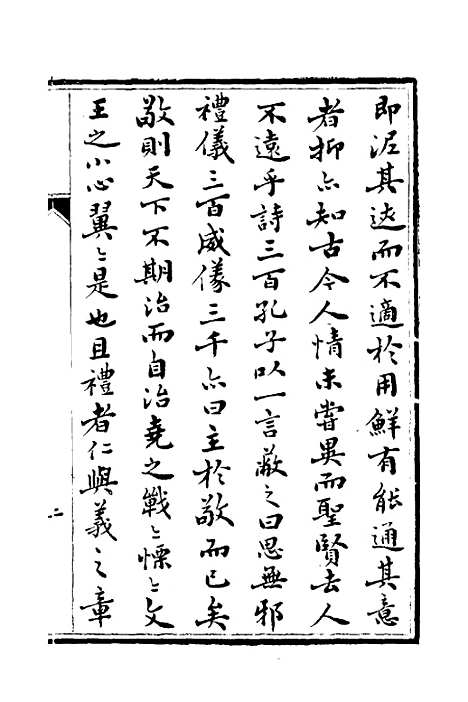 即泥其迹而不適於用鮮有能通其意
者抑亦知古今人情未嘗異而聖賢去人
不遠乎詩三百孔子以一言蔽之曰思無邪
禮儀三百威儀三千亦曰主於敬而已矣
敬則天下不期治而自治堯之戰〻慄〻文
王之小心翼〻是也且禮者仁與義之章
二